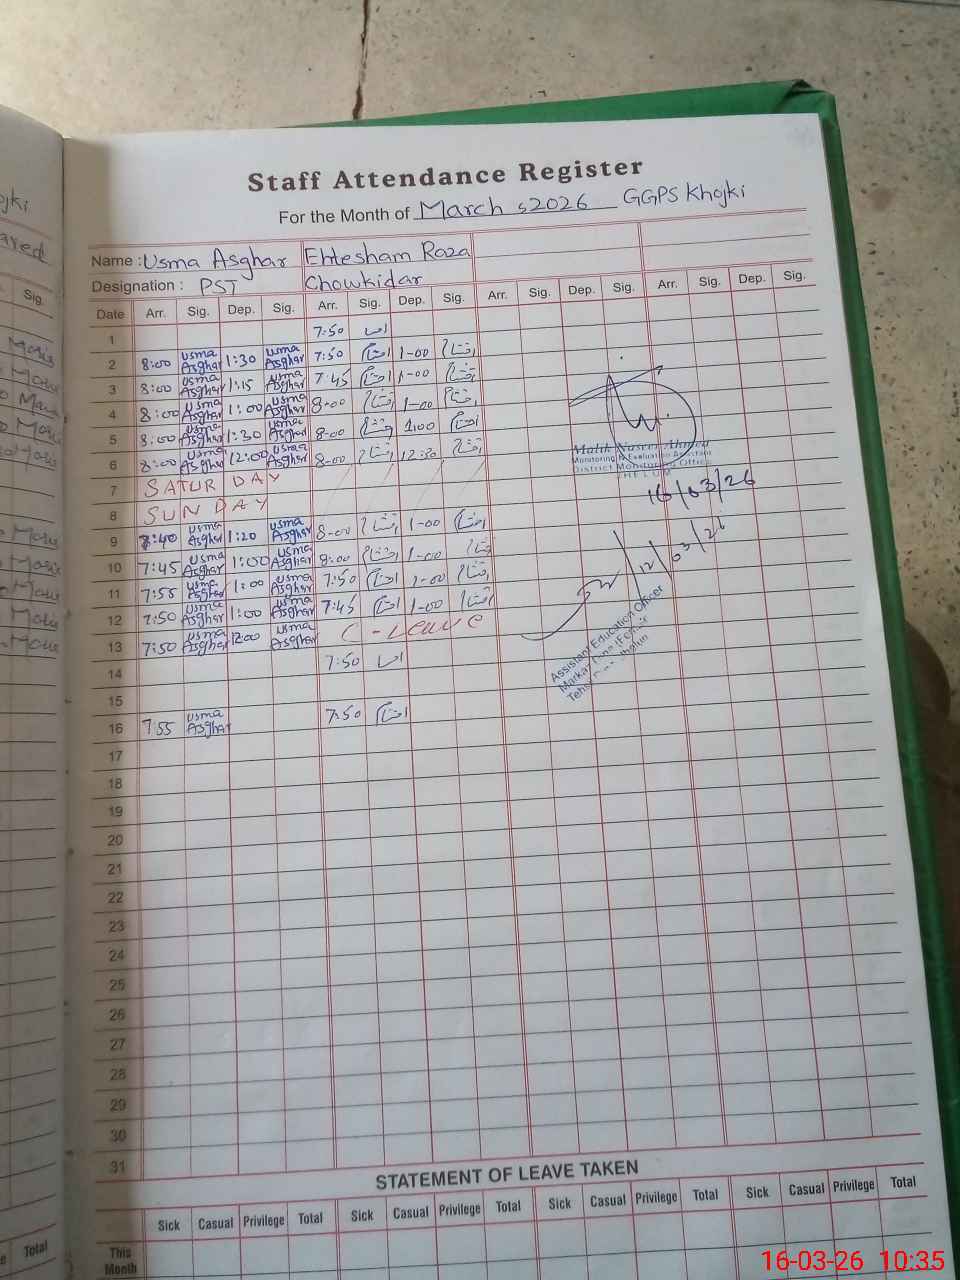 Staff Attendance Register
For the Month of March, 2026 GGPS Khojki
Name : Usma Asghar Ehtesham Raza
Designation : PST Chowkidar
Date Arr. Sig. Dep. Sig. Arr. Sig. Dep. Sig. Arr. Sig. Dep. Sig. Arr. Sig. Dep. Sig.
1 7:50
2 8:00 Usma Asghar 1:30 Usma Asghar 7:50 1-00
3 8:00 Usma Asghar 1:15 Usma Asghar 7:45 1-00
4 8:00 Usma Asghar 1:00 Usma Asghar 8-00 1-00
5 8:00 Usma Asghar 1:30 Usma Asghar 8-00 1:00
6 8:00 Usma Asghar 12:00 Usma Asghar 8-00 12:30
7 SATUR DAY
8 SUN DAY
9 7:40 Usma Asghar 1:20 Usma Asghar 8-00 1-00
10 7:45 Usma Asghar 1:00 Usma Asghar 8:00 1-00
11 7:55 Usma Asghar 1:00 Usma Asghar 7:50 1-00
12 7:50 Usma Asghar 1:00 Usma Asghar 7:45 1-00
13 7:50 Usma Asghar 12:00 Usma Asghar C-Leave
14 7:50
15
16 7:55 Usma Asghar 7:50
17
18
19
20
21
22
23
24
25
26
27
28
29
30
31
Malik Nasir Ahmed
Monitoring & Evaluation Assistant
District Monitoring Office
JHELUM
16/03/26
12/03/26
Assistant Education Officer
STATEMENT OF LEAVE TAKEN
Sick Casual Privilege Total Sick Casual Privilege Total Sick Casual Privilege Total Sick Casual Privilege Total
This Month
Sig.
Total
16-03-26 10:35